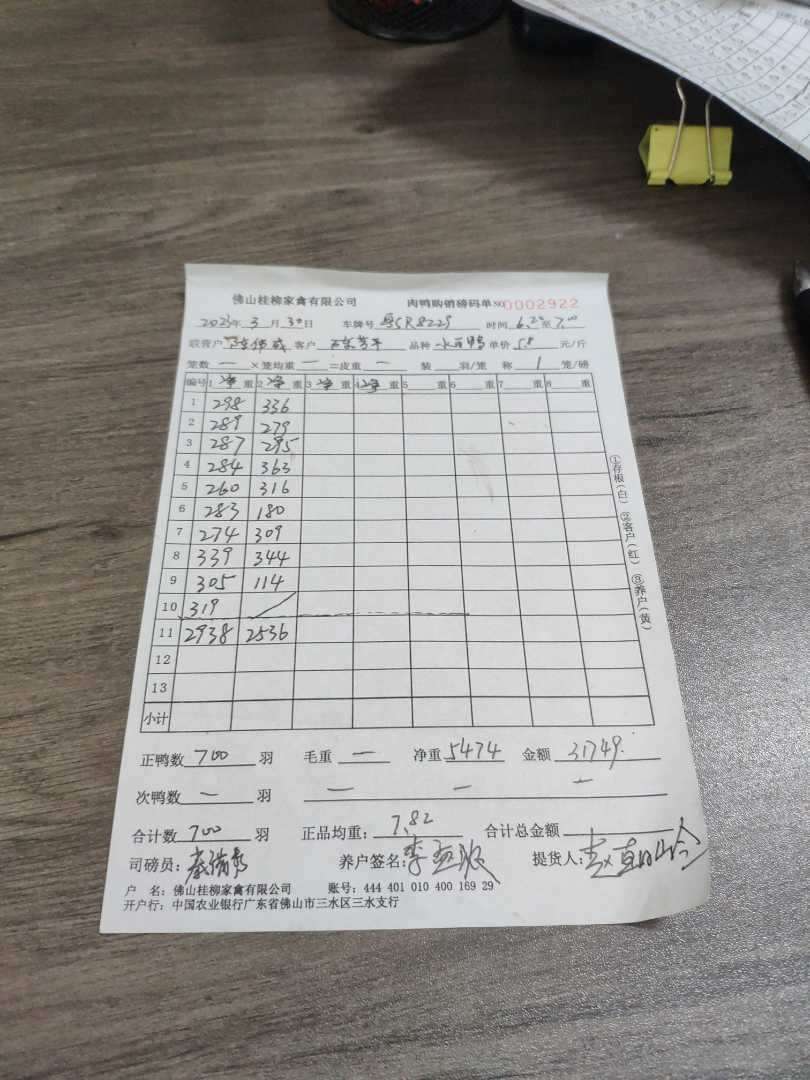 佛山桂柳家禽有限公司 肉鸭购销磅码单 NO 0002922
2023年 3月 30日 车牌号 粤CR8229 时间 6:20至7:00
联营户 客户 品种 水 鸭 单价 5.8 元/斤
笼数 — ×笼均重 — =皮重 — 装 羽/笼 称 1 笼/磅
编号 1 净 重 2 净 重 3 净 重 4 净 重 5 重 6 重 7 重 8 重
1 298 336
2 289 279
3 287 295
4 284 363
5 260 316
6 283 180
7 274 309
8 339 344
9 305 114
10 319 /
11 2938 2536
12
13
小计
①存根(白) ②客户(红) ③养户(黄)
正鸭数 700 羽 毛重 — 净重 5474 金额 31749.
次鸭数 — 羽 — — —
合计数 700 羽 正品均重: 7.82 合计总金额
司磅员: 养户签名: 李 提货人:
户 名: 佛山桂柳家禽有限公司 账号: 444 401 010 400 169 29
开户行: 中国农业银行广东省佛山市三水区三水支行